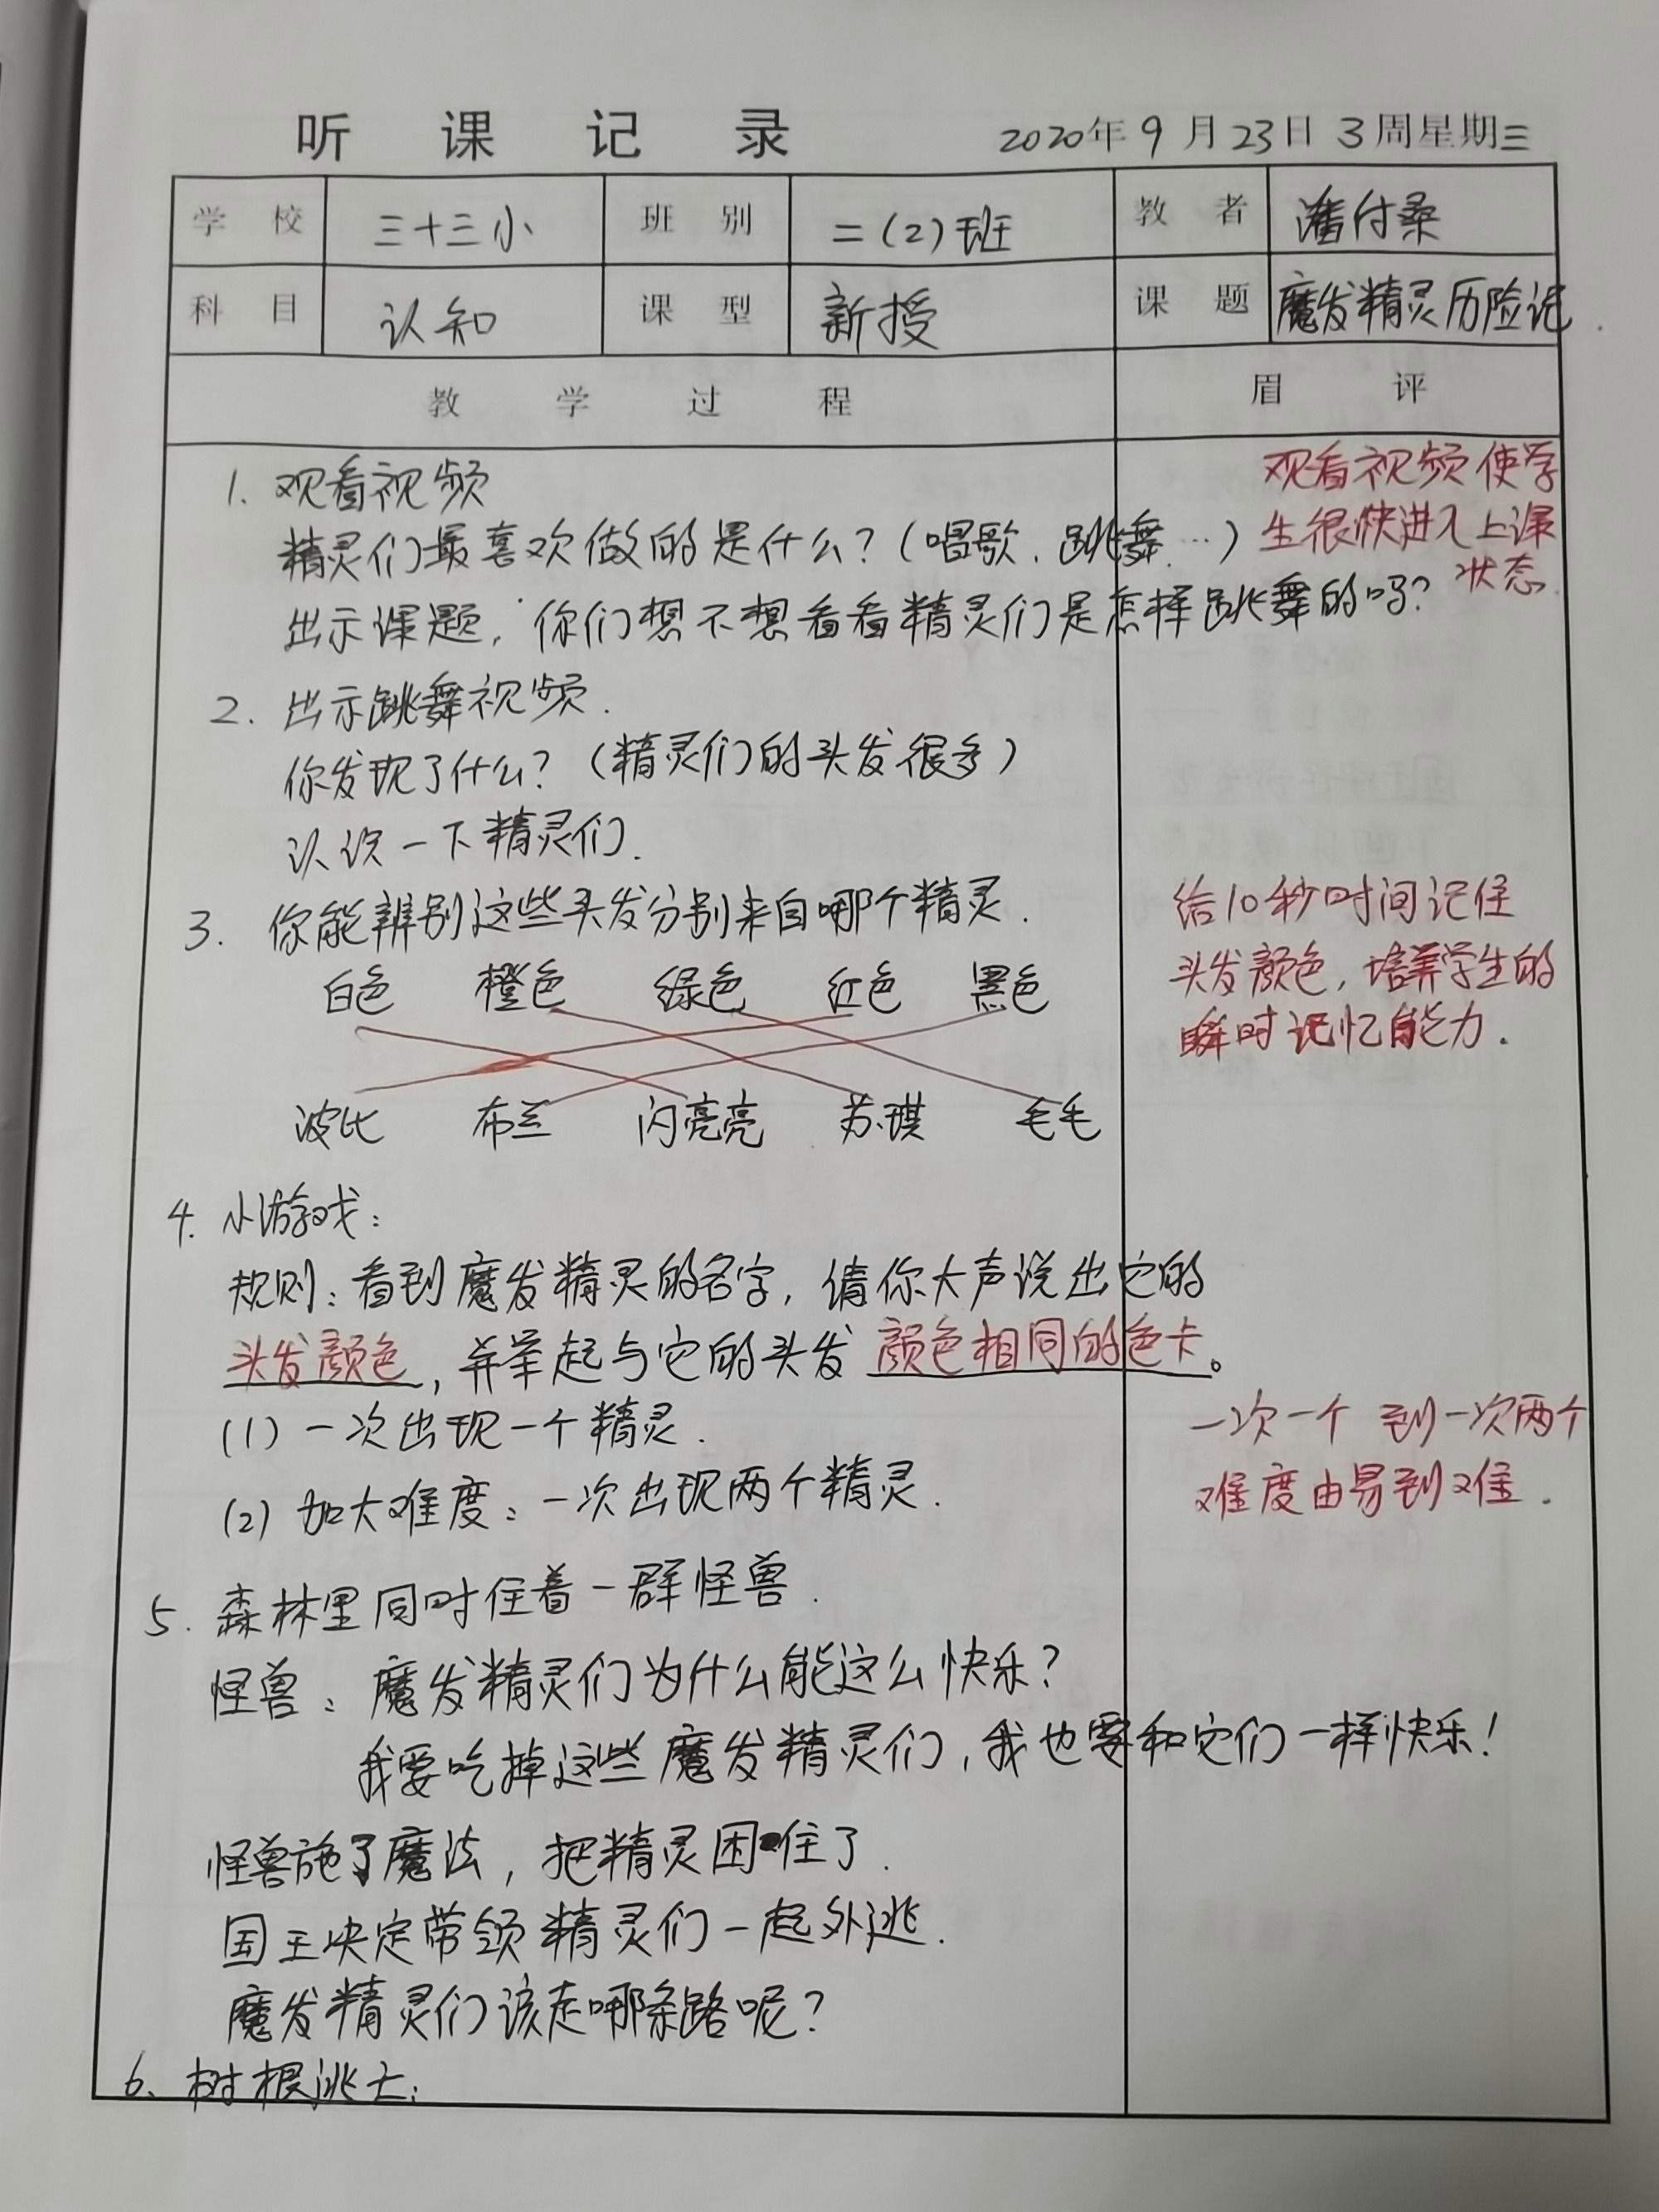 听课记录 2020年9月23日 3周星期三
学校 三十三小 班别 二(2)班 教者 潘付桑
科目 认知 课型 新授 课题 魔发精灵历险记
教学过程 眉评
1. 观看视频
精灵们最喜欢做的是什么?(唱歌、跳舞…)
出示课题,你们想不想看看精灵们是怎样跳舞的吗?
观看视频使学
生很快进入上课
状态.
2. 出示跳舞视频.
你发现了什么?(精灵们的头发很多)
认识一下精灵们.
3. 你能辨别这些头发分别来自哪个精灵.
白色 橙色 绿色 红色 黑色
波比 布兰 闪亮亮 苏琪 毛毛
给10秒时间记住
头发颜色,培养学生的
瞬时记忆能力.
4. 小游戏:
规则:看到魔发精灵的名字,请你大声说出它的
头发颜色,并举起与它的头发颜色相同的色卡。
(1) 一次出现一个精灵.
(2) 加大难度:一次出现两个精灵.
一次一个到一次两个
难度由易到难.
5. 森林里同时住着一群怪兽.
怪兽:魔发精灵们为什么能这么快乐?
我要吃掉这些魔发精灵们,我也要和它们一样快乐!
怪兽施了魔法,把精灵困住了.
国王决定带领精灵们一起外逃.
魔发精灵们该走哪条路呢?
6、树根逃亡: